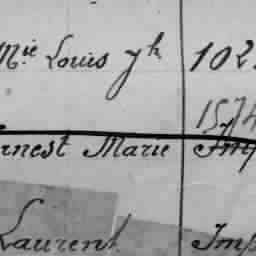 Mie Louis jh 102
1574
rnest Marie Imp
Laurent Imp